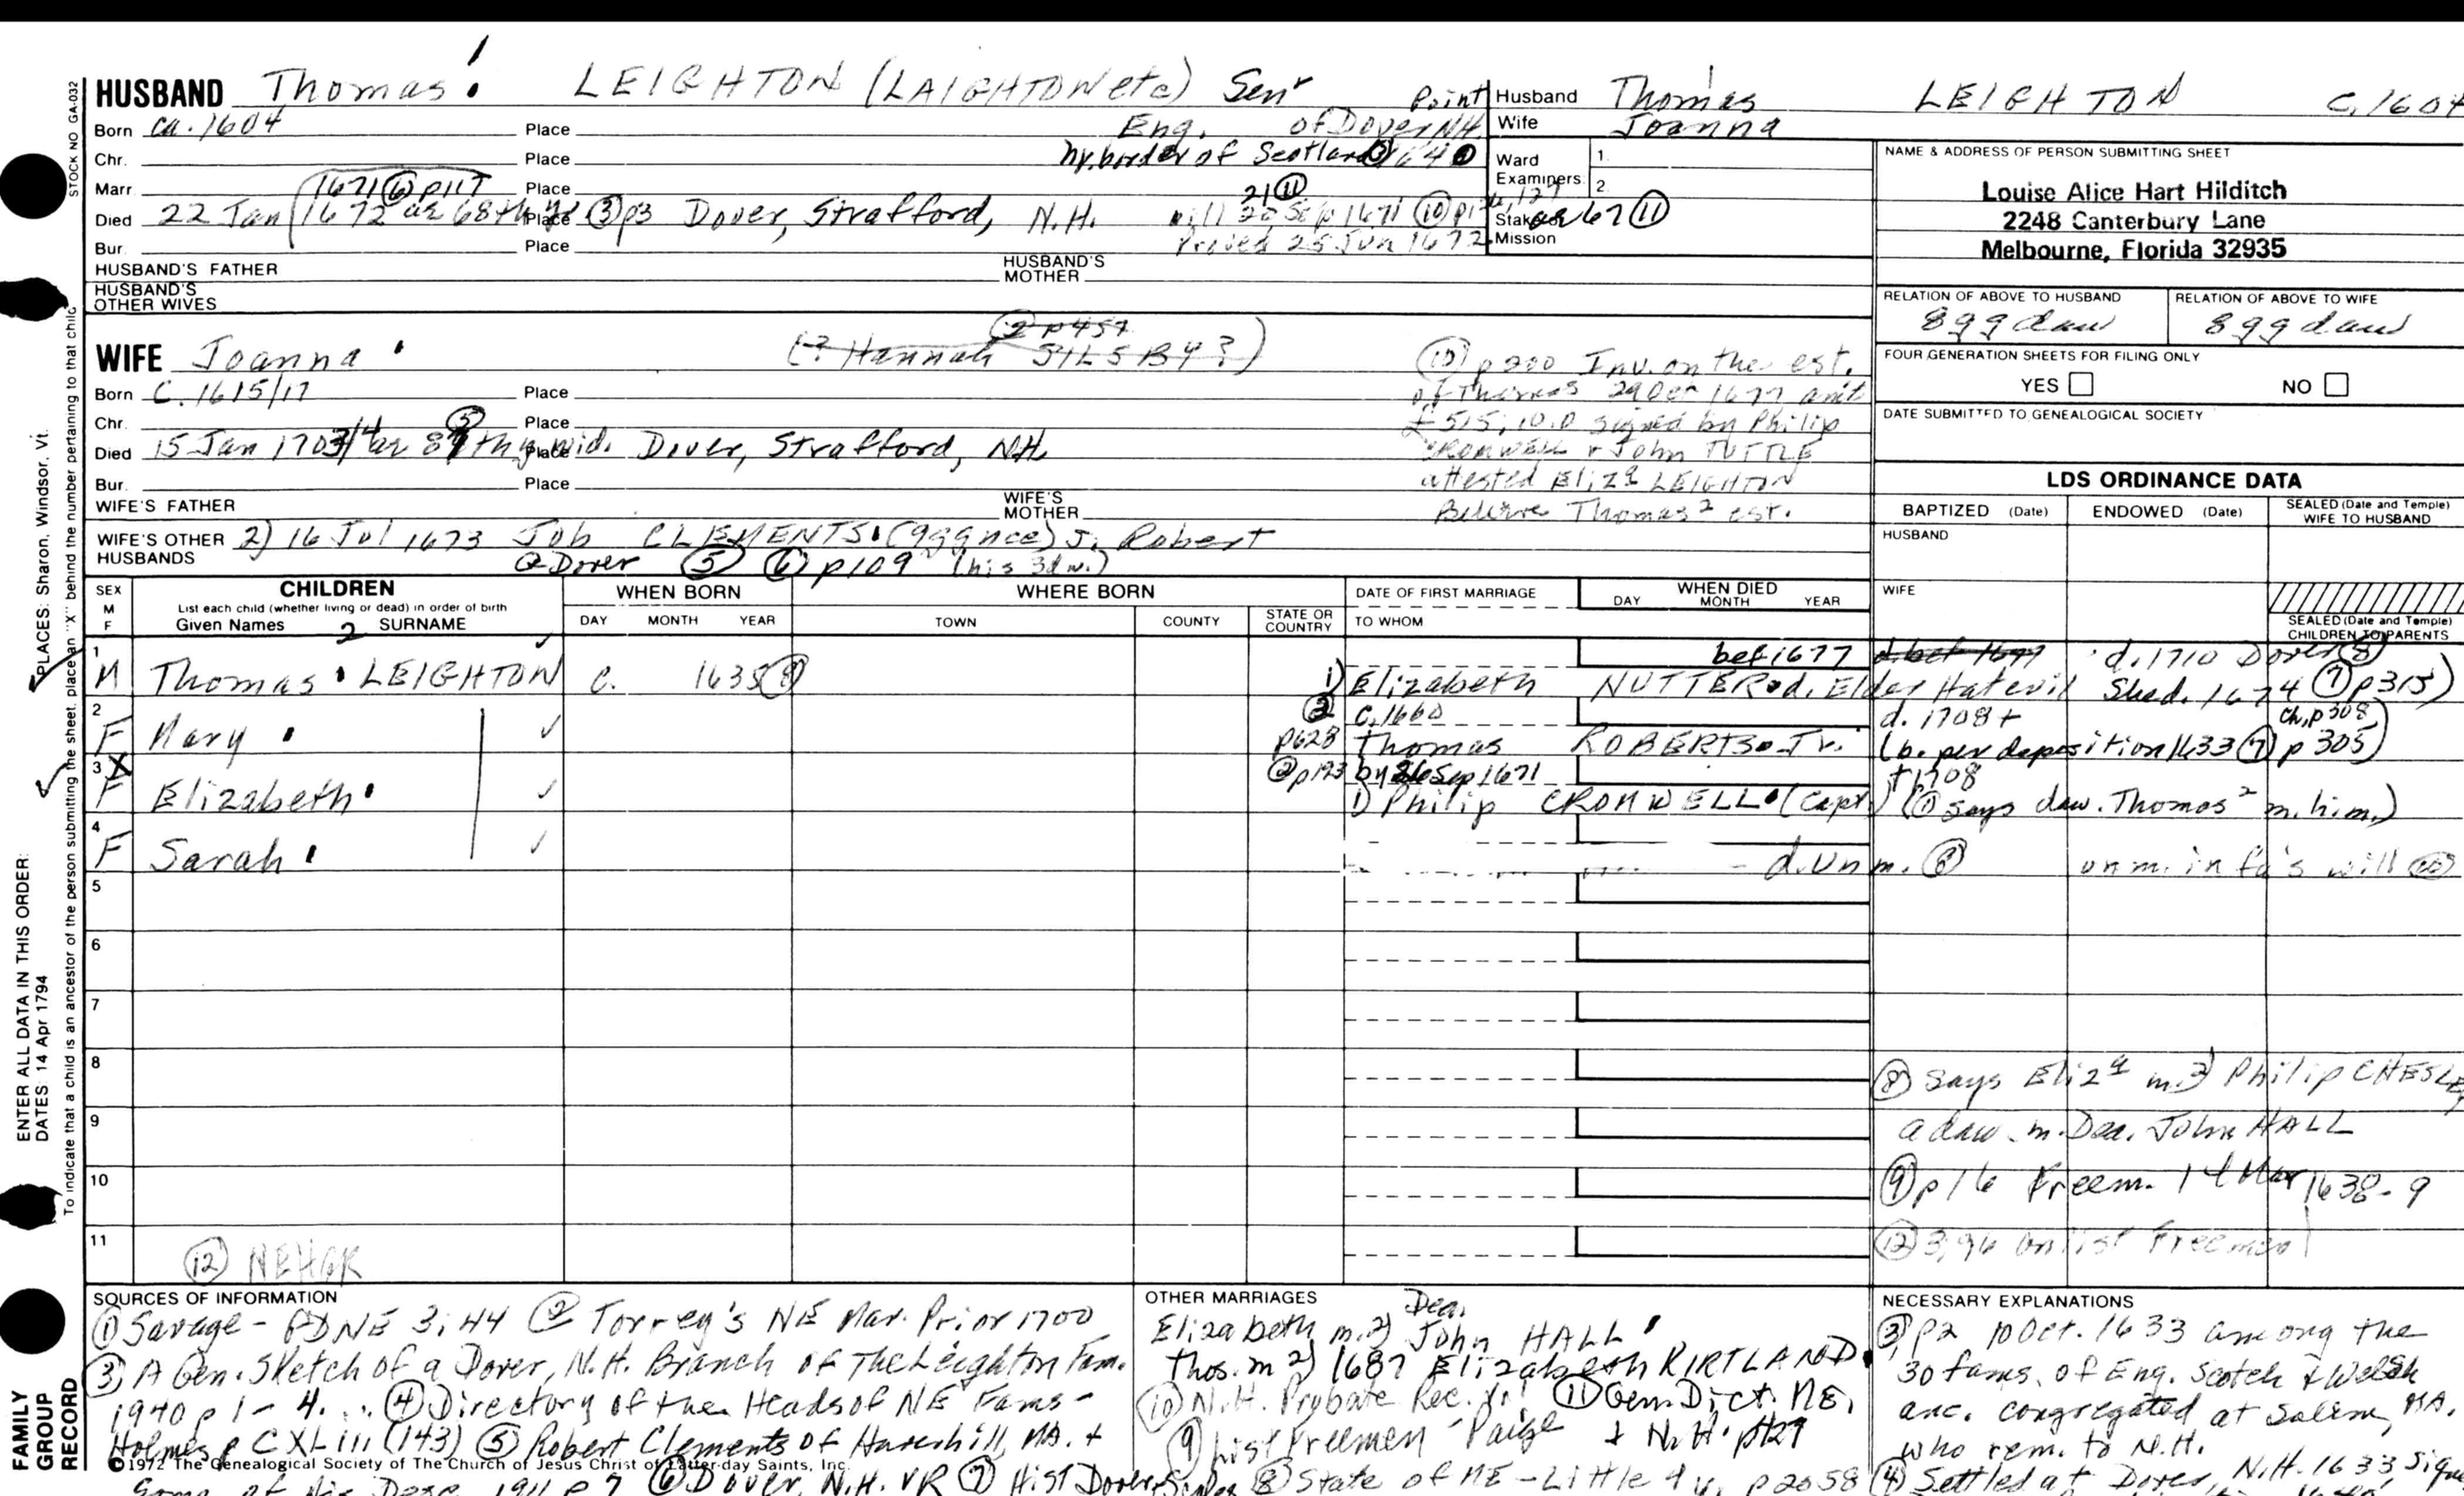 HUSBAND Thomas 1 LEIGHTON (LAIGHTON etc) Senr
Born ca. 1604 Place Eng. of Dover NH Print
Chr. Place nr. border of Scotland 1640
Marr. 1671 (6) p117 Place 21 (11)
Died 22 Jan 1672 ae 68th yr Place (3) p3 Dover, Strafford, N.H. will 20 Sep 1671 (10) ae 67 (11)
Bur. Place Proved 25 Jun 1672
HUSBAND'S FATHER HUSBAND'S MOTHER
HUSBAND'S OTHER WIVES
Husband Thomas LEIGHTON C. 1604
Wife Joanna
Ward 1.
Examiners: 2.
Stake or
Mission
NAME & ADDRESS OF PERSON SUBMITTING SHEET
Louise Alice Hart Hilditch
2248 Canterbury Lane
Melbourne, Florida 32935
RELATION OF ABOVE TO HUSBAND RELATION OF ABOVE TO WIFE
8ggdau 8ggdau
FOUR GENERATION SHEETS FOR FILING ONLY
YES NO
DATE SUBMITTED TO GENEALOGICAL SOCIETY
(2 p457
WIFE Joanna (? Hannah SILSBY?)
Born C. 1615/17 Place
Chr. (5) Place
Died 15 Jan 1703/4 ae 87th y wid. Place Dover, Strafford, NH.
Bur. Place
WIFE'S FATHER WIFE'S MOTHER
WIFE'S OTHER HUSBANDS 2) 16 Jul 1673 Job CLEMENTS (gggnce) s. Robert
@ Dover (5) (6) p109 (his 3d w.)
(10) p200 Inv. on the est.
of Thomas 29 1677 amt
£515; 10.0 signed by Philip
CROMWELL & John TUTTLE
attested Elizª LEIGHTON
Believe Thomas² est.
LDS ORDINANCE DATA
BAPTIZED (Date) ENDOWED (Date) SEALED (Date and Temple) WIFE TO HUSBAND
HUSBAND
WIFE
SEALED (Date and Temple) CHILDREN TO PARENTS
SEX M F
CHILDREN
List each child (whether living or dead) in order of birth
Given Names 2 SURNAME
WHEN BORN
DAY MONTH YEAR
WHERE BORN
TOWN COUNTY STATE OR COUNTRY
DATE OF FIRST MARRIAGE
TO WHOM
WHEN DIED
DAY MONTH YEAR
1 M Thomas LEIGHTON C. 1635 (8) bef 1677 d. bef 1677 d. 1710 Dover (8)
1) Elizabeth NUTTER d. Elder Hatevil (7) p315)
2 F Mary (2) p628 c. 1660 d. 1708+ ch, p308
Thomas ROBERTS Jr. (b. per deposition 1633 (7) p 305)
3 X F Elizabeth (2) p193 by 26 Sep 1671 +1708
1) Philip CROMWELL (Capt) (1) says dau. Thomas² m. him.)
4 F Sarah d. unm. (8) unm. in fa's will (10)
5
6
7
8 (8) says Elizª m. 3) Philip CHESLEY
9 a dau. m. Dea. John HALL
10 (9) p16 Freem. 14 Mar 1638-9
11 (12) NEHGR (12) 3;96 on list Freemen
SOURCES OF INFORMATION
(1) Savage - GDNE 3:44 (2) Torrey's NE Mar. Prior 1700
(3) A Gen. Sketch of a Dover, N.H. Branch of The Leighton Fam.
1940 p 1-4... (4) Directory of the Heads of NE Fams -
Holmes p CXLiii (143) (5) Robert Clements of Haverhill, MA. +
Some of his Desc. 1911 p 7 (6) Dover, N.H. VR (7) Hist Dover, Scales (8) State of ME - Little 4 v. p2058
OTHER MARRIAGES
Elizabeth m. 2) Dea. John HALL
Thos. m 2) 1687 Elizabeth KIRTLAND.
(10) N.H. Probate Rec. v1 (11) Gen. Dict. ME,
(9) List Freemen Paige + N.H. p427
NECESSARY EXPLANATIONS
(3) P2 10 Oct. 1633 among the
30 fams. of Eng. Scotch & Welsh
anc. congregated at Salem, MA.
who rem. to N.H.
(4) Settled at Dover, N.H. 1633, sign
©1972 The Genealogical Society of The Church of Jesus Christ of Latter-day Saints, Inc.
STOCK NO GA-032
ENTER ALL DATA IN THIS ORDER:
DATES: 14 Apr 1794
PLACES: Sharon, Windsor, Vt.
To indicate that a child is an ancestor of the person submitting the sheet, place an "X" behind the number pertaining to that child
FAMILY GROUP RECORD